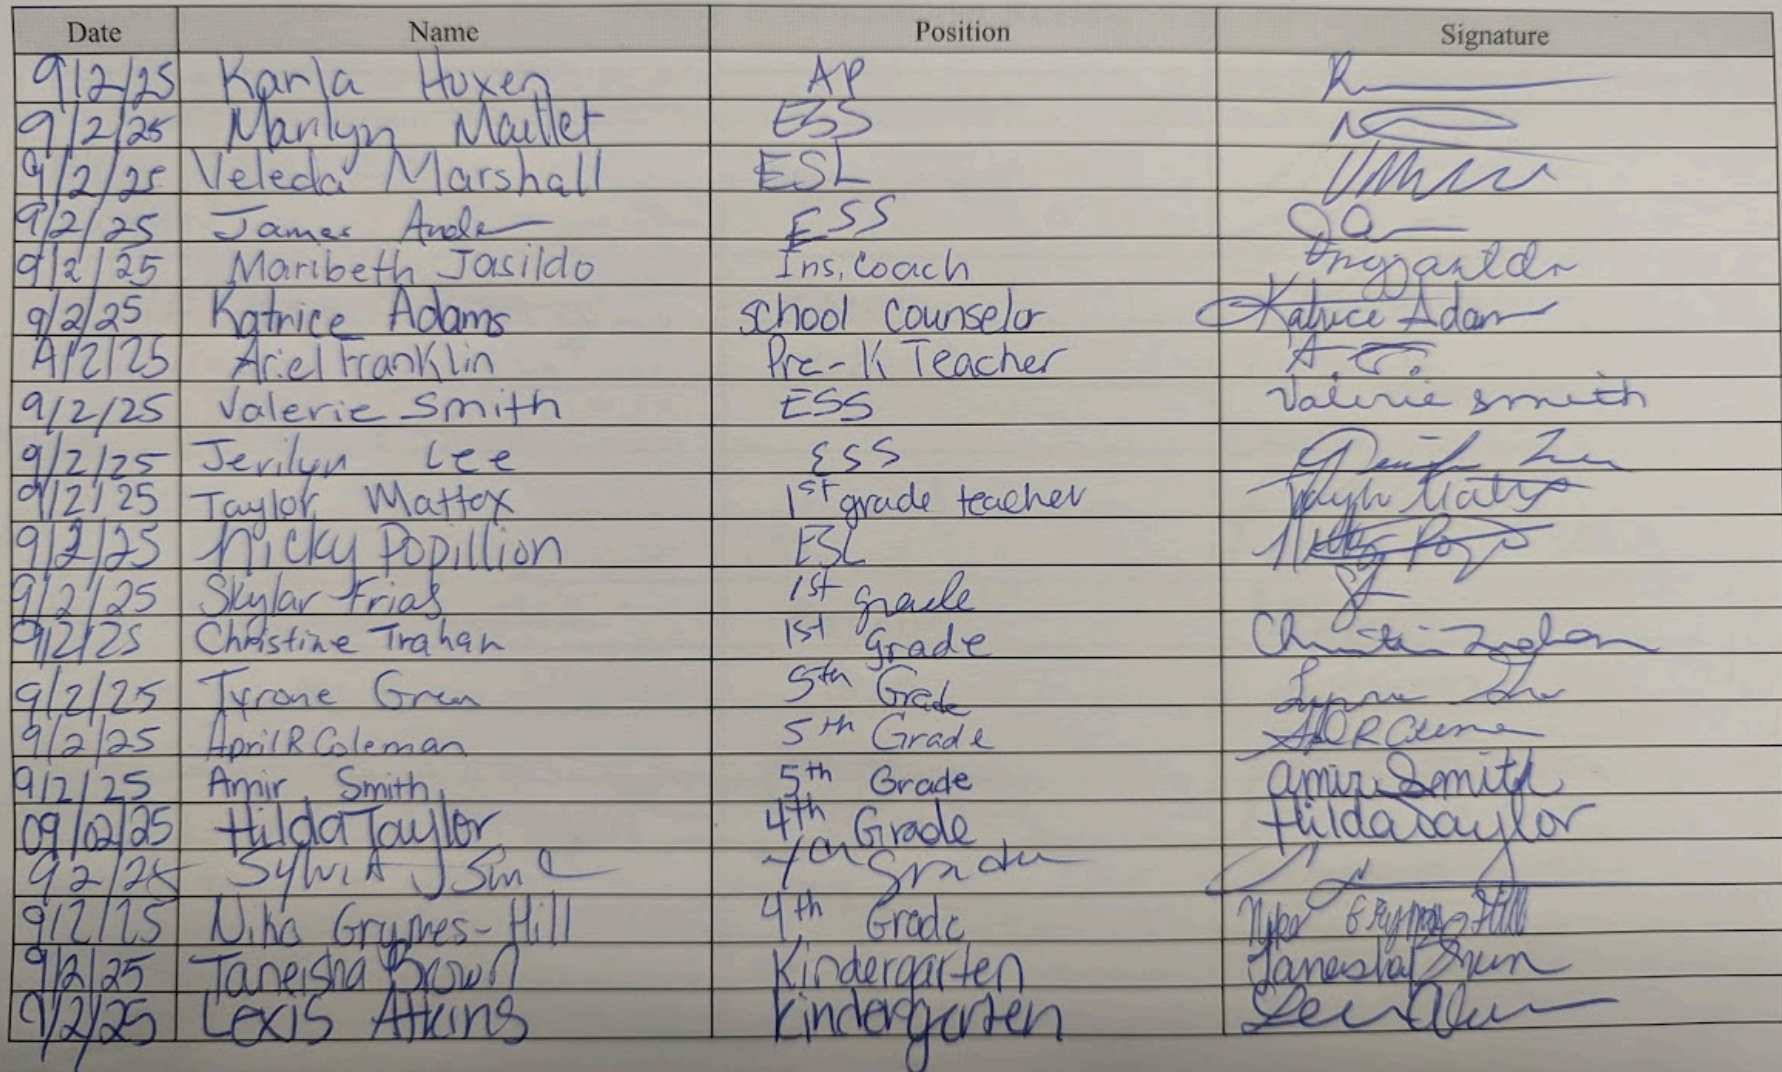 Date Name Position Signature
9/2/25 Karla Huxen AP
9/2/25 Marilyn Maillet ESS
9/2/25 Veleda Marshall ESL
9/2/25 James ESS
9/2/25 Maribeth Jasildo Ins. Coach
9/2/25 Katrice Adams school counselor Katrice Adams
9/2/25 Ariel Franklin Pre-K Teacher
9/2/25 Valerie Smith ESS Valerie Smith
9/2/25 Jerilyn Lee ESS
9/2/25 Taylor Mattox 1st grade teacher Taylor Mattox
9/2/25 Nicky Popillion ESL
9/2/25 Skylar Frias 1st grade
9/2/25 Christine Trahan 1st Grade Christine Trahan
9/2/25 Tyrone Green 5th Grade
9/2/25 April R Coleman 5th Grade
9/2/25 Amir Smith 5th Grade Amir Smith
09/02/25 Hilda Taylor 4th Grade Hilda Taylor
9/2/25 Sylvia J 4th Grade
9/2/25 Grymes-Hill 4th Grade Grymes Hill
9/2/25 Taneisha Brown Kindergarten Taneisha Brown
9/2/25 Lexis Atkins Kindergarten